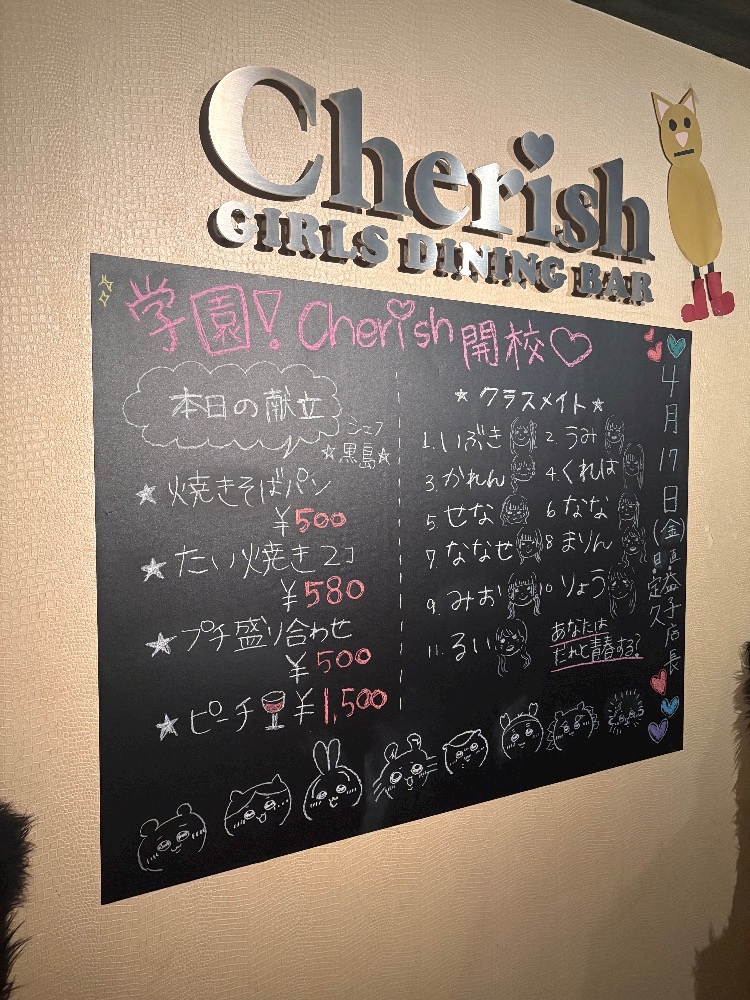 Cherish
GIRLS DINING BAR
学園！Cherish開校♡
本日の献立
シェフ
☆黒島☆
★焼きそばパン
¥500
★たい焼き2コ
¥580
★プチ盛り合わせ
¥500
★ピーチ ¥1,500
★クラスメイト★
1.いぶき 2 うみ
3.かれん 4.くれは
5 せな 6 なな
7 ななせ 8 まりん
9.みお 10 りょう
11.るい
あなたは
だれと青春する？
4月17日(金)
益子店長